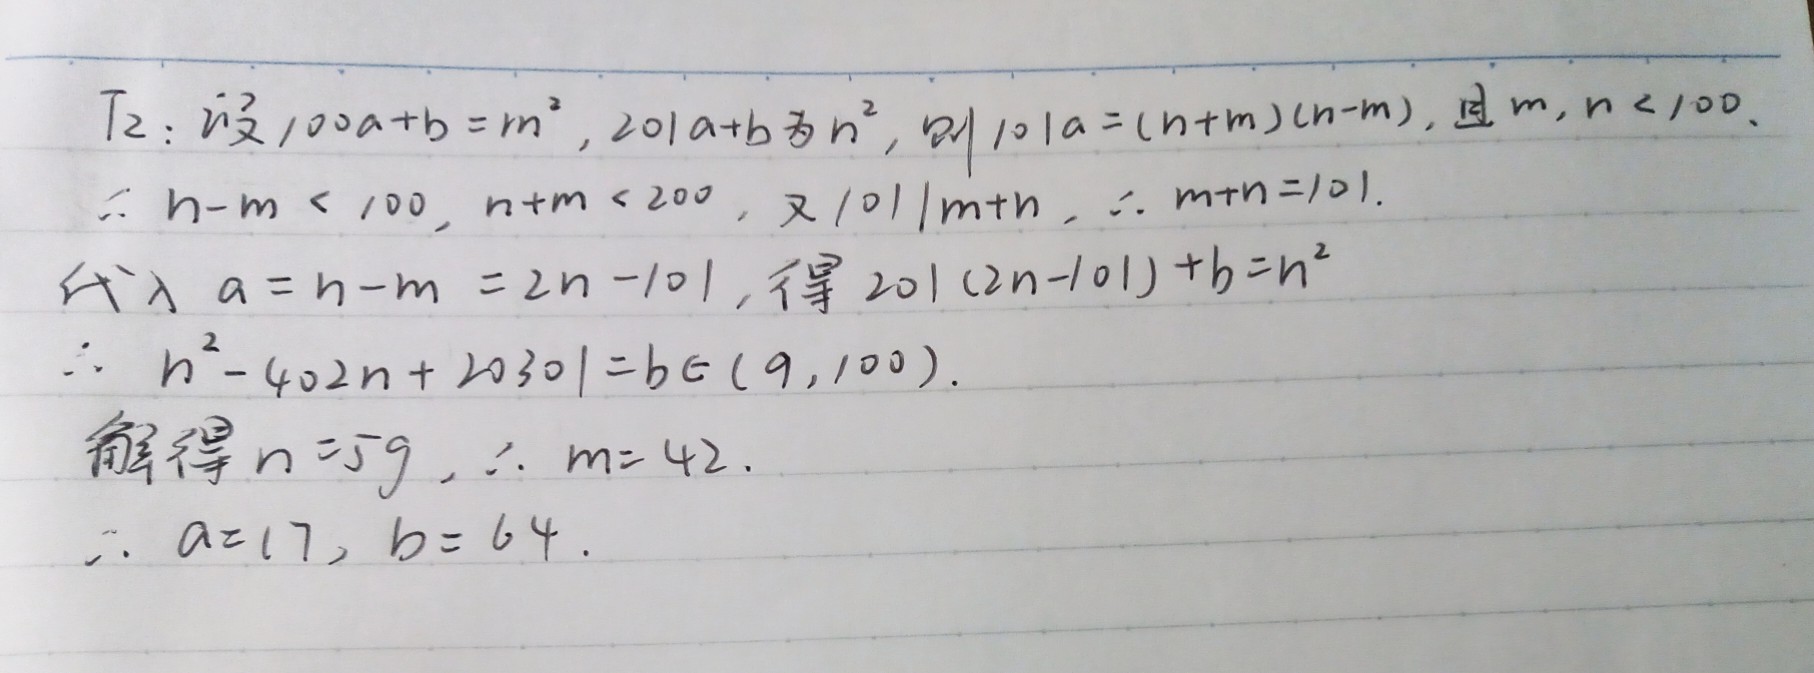 T2: 设100a+b=m², 201a+b为n², 则101a=(n+m)(n-m), 且m, n<100.
∴ n-m<100, n+m<200, 又101|m+n, ∴ m+n=101.
代入 a=n-m=2n-101, 得201(2n-101)+b=n²
∴ n²-402n+20301=b∈(9,100).
解得n=59, ∴ m=42.
∴ a=17, b=64.